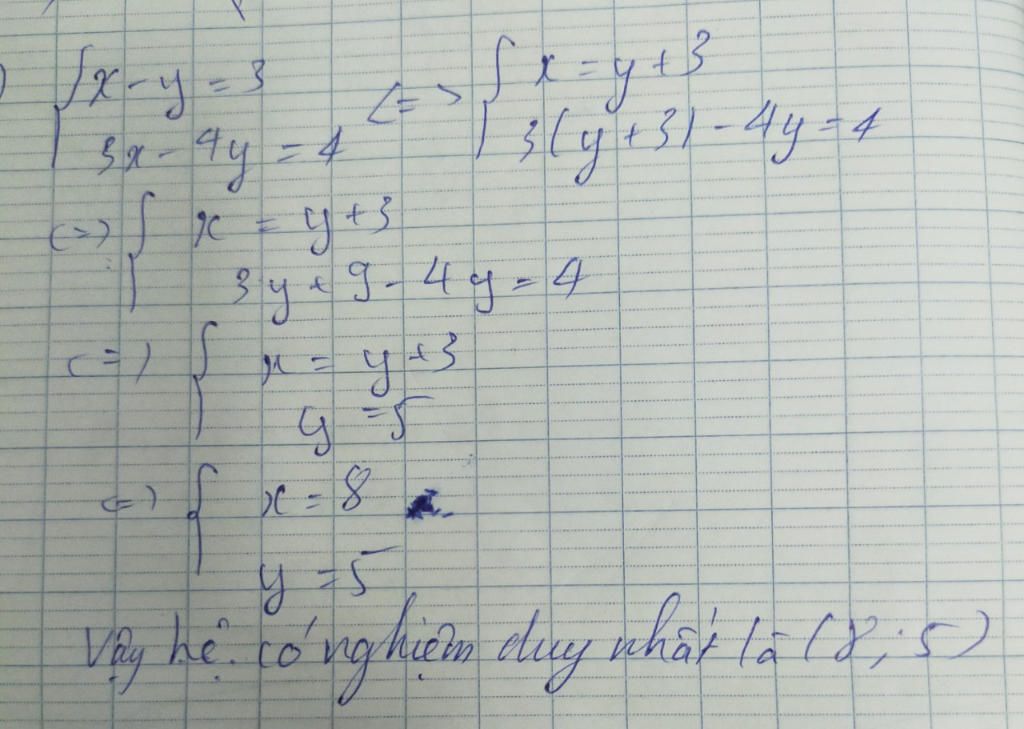 ) { x - y = 3 <=> { x = y + 3
3x - 4y = 4 3(y + 3) - 4y = 4
<=> { x = y + 3
3y + 9 - 4y = 4
<=> { x = y + 3
y = 5
<=> { x = 8
y = 5
Vậy hệ có nghiệm duy nhất là (8; 5)